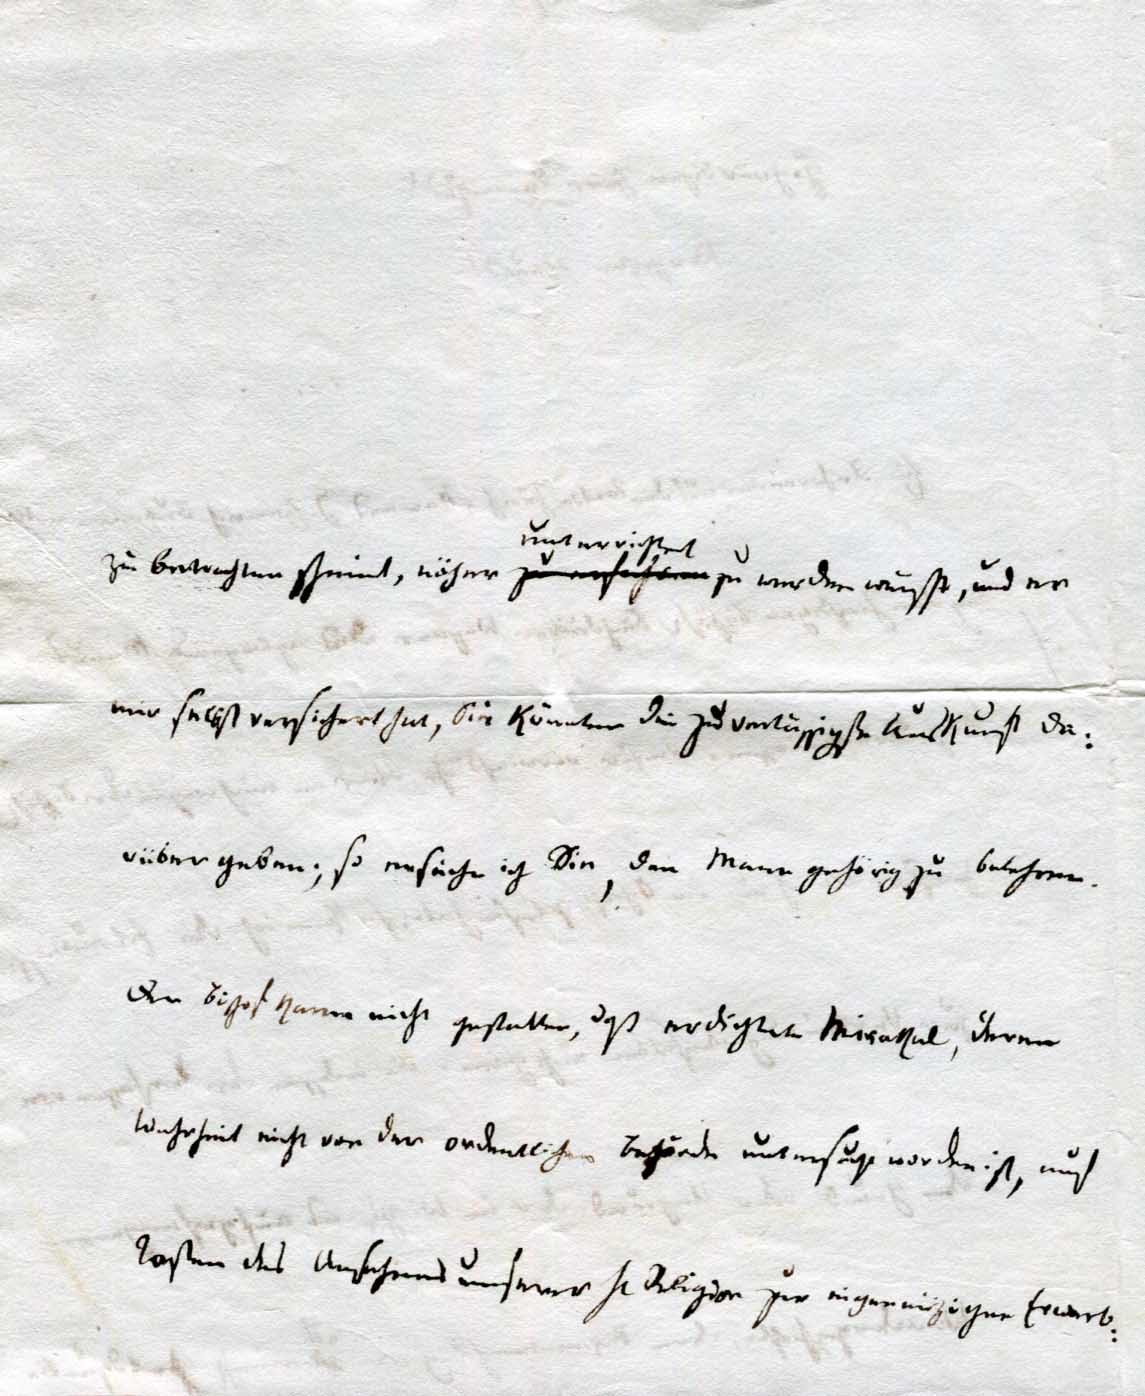 unterrichtet
zu betrachten scheint, näher zu erfahren zu werden wünscht, und er
mir selbst versichert hat, Sie könnten die zuverlässigste Auskunft da:
rüber geben; so ersuche ich Sie, den Mann gehörig zu belehren.
Der Bischof kann nicht gestatten, daß erdichtete Mirakel, deren
Wahrheit nicht von der ordentlichen Behörde untersucht worden ist, auf
Kosten des Ansehens unserer hl Religion zur eigennützigen Erwerb: